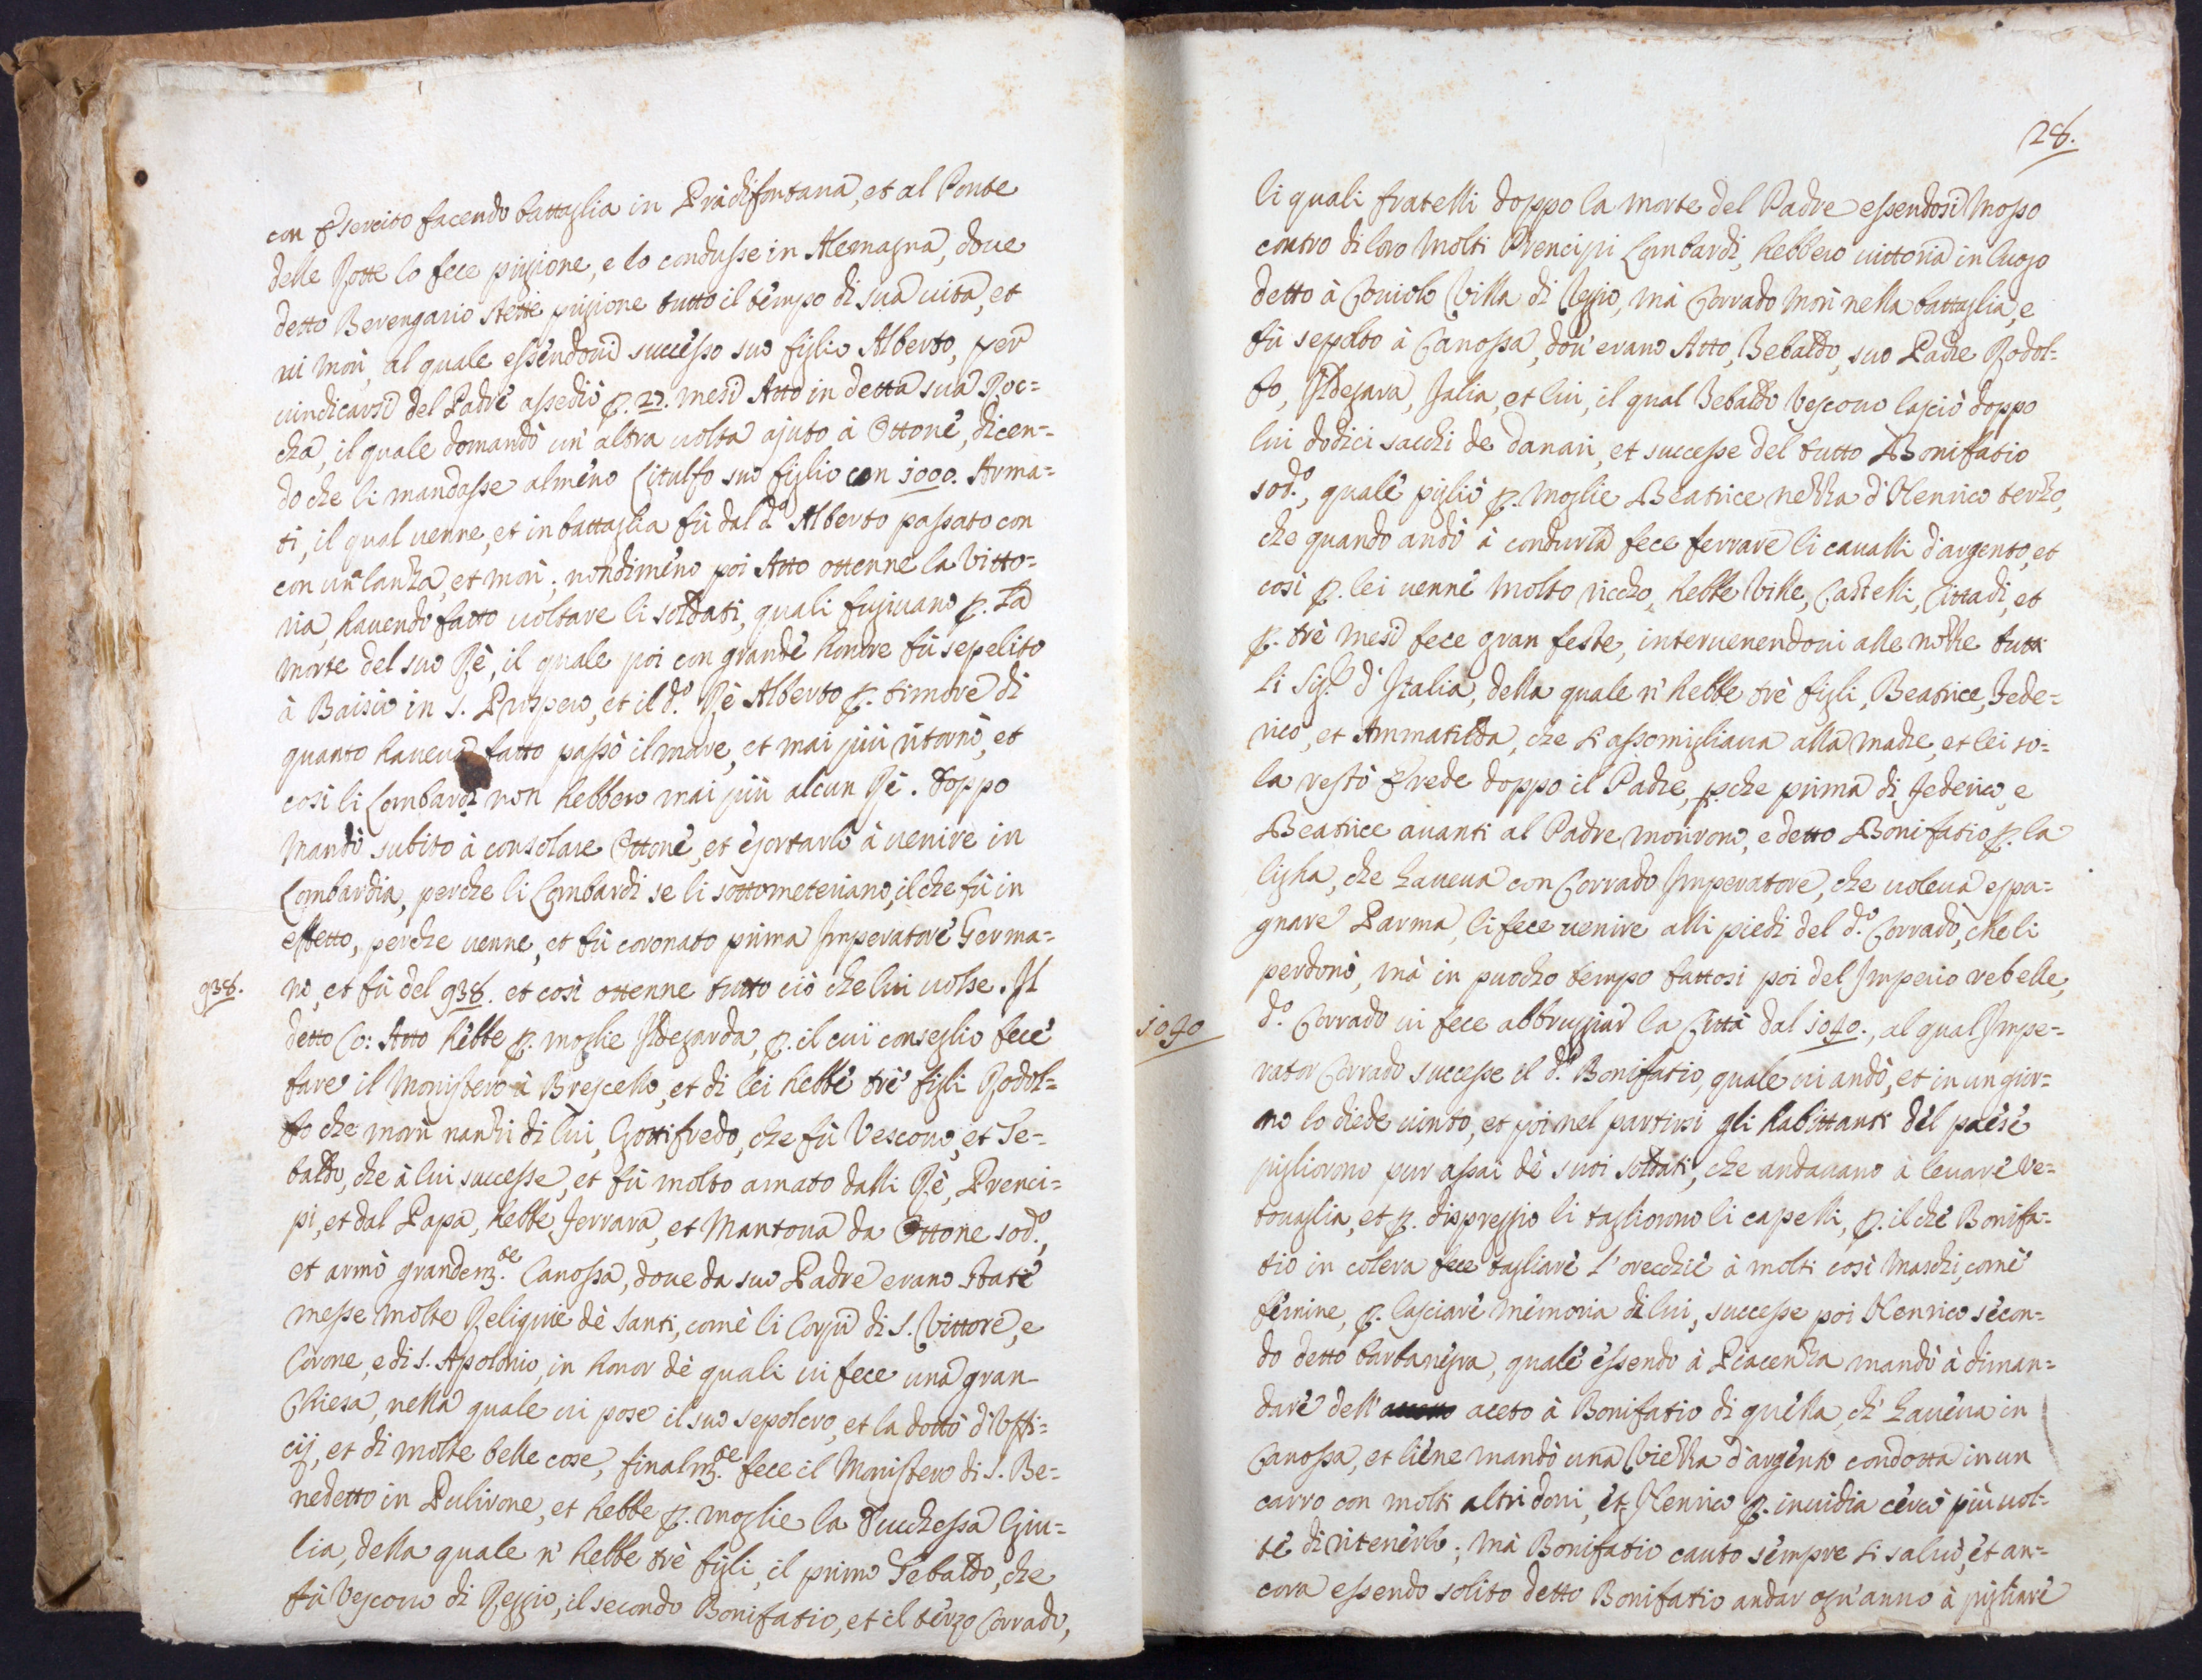 con Esercito facendo battaglia in Pràdifontana, et al Ponte
delle Rotte lo fece pigione, e lo condusse in Alemagna, doue
detto Berengario stette prigione tutto il tempo di sua uita, et
ui morì, al quale essendoui successo suo figlio Alberto, per
uindicarsi del Padre assediò p. 22. mesi Atto in detta sua Roc=
cha, il quale domandò un' altra uolta ajuto à Ottone, dicen=
do che li mandasse almeno Litulfo suo figlio con 1000. Arma=
ti, il qual uenne, et in battaglia fù dal d.º Alberto passato con
con una lanza, et morì; nondimeno poi Atto ottenne la Vitto=
ria, hauendo fatto uoltare li soldati, quali fugiuano p. la
morte del suo Rè, il quale poi con grande honore fù sepelito
à Baisio in S. Prospero, et il d.º Rè Alberto p. timore di
quanto haueua fatto passò il mare, et mai più ritornò, et
così li Lombardi non hebbero mai più alcun Rè. Doppo
mandò subito à consolare Ottone, et esortarlo à uenire in
Lombardia, perche li Lombardi se li sottometeriano, il che fù in
effetto, perche uenne, et fù coronato prima Imperatore Germa=
938. no, et fù del 938. et così ottenne tutto ciò che lui uolse. Il
detto Co: Atto hebbe p. moglie Ildegarda, p. il cui conseglio fece
fare il Monistero à Brescello, et di lei hebbe trè figli Rodol=
fo che morù nanzi di lui, Gottifredo, che fù Vescouo, et Te=
baldo, che à lui successe, et fù molto amato dalli Rè, Prenci=
pi, et dal Papa, hebbe Ferrara, et Mantoua da Ottone sod.º,
et armò grandem.te Canossa, doue da suo Padre erano state
messe molte Reliquie dè Santi, come li Corpi di S. Vittore, e
Corone, e di S. Apolonio, in honor dè quali ui fece una gran
Chiesa, nella quale ui pose il suo sepolcro, et la dottò d'Uffi=
cij, et di molte belle cose, finalm.te fece il Monistero di S. Be=
nedetto in Pulirone, et hebbe p. moglie la Duchessa Giu=
lia, della quale n' hebbe trè figli, il primo Tebaldo, che
fù Vescouo di Reggio, il secondo Bonifatio, et il terzo Corrado,
28.
li quali fratelli doppo la morte del Padre essendosi mosso
contro di loro molti Prencipi Lombardi, hebbero uittoria in luogo
detto à Couiolo Villa di Reggio, mà Corrado morì nella battaglia, e
fù sepolto à Canossa, dou' erano Atto, Tebaldo, suo Padre Rodol=
fo, Ildegara, Jalia, et lui, il qual Tebaldo Vescouo lasciò doppo
lui dodici sacchi de danari, et successe del tutto Bonifatio
sod.º, quale pigliò p. moglie Beatrice nezza d'Henrico terzo,
che quando andò à condurla fece ferrare li caualli d'argento, et
così p. lei uenne molto riccho, hebbe Ville, Castelli, Cittadi, et
p. trè mesi fece gran feste, interuenendoui alle nozze tutti
li Sig.ri d'Italia, della quale n' hebbe trè figli, Beatrice, Fede=
rico, et Ammatilda, che si assomigliaua alla madre, et lei so=
la restò Erede doppo il Padre, p.che prima di Federico, e
Beatrice auanti al Padre morirono, e detto Bonifatio p. la
ligha, che haueua con Corrado Imperatore, che uoleua espu=
gnare Parma, li fece uenire alli piedi del d.º Corrado, che li
perdonò, mà in puocho tempo fattosi poi del Imperio rebelle,
1040 d.º Corrado ui fece abbrugiar la Città dal 1040., al qual Impe=
rator Corrado successe il d.º Bonifatio, quale ui andò, et in un gior=
no lo diede uinto, et poi nel partirsi gli habittanti del paese
pigliorono pur assai dè suoi soldati, che andauano à leuare ve=
touaglia, et p. dispreggio li tagliorono li capelli, p. il che Bonifa=
tio in colera fece tagliare l'orecchie à molti così maschi, come
femine, p. lasciare memoria di lui, successe poi Henrico secon=
do detto barbanegra, quale essendo à Piacenza mandò à diman=
dare dell' aceto à Bonifatio di quella, ch' haueua in
Canossa, et liene mandò una Viezza d'argento condotta in un
carro con molti altri doni, et Henrico p. inuidia cercò più uol=
te di ritenerlo; mà Bonifatio cauto sempre si saluò, et an=
cora essendo solito detto Bonifatio andar ogn'anno à pigliare